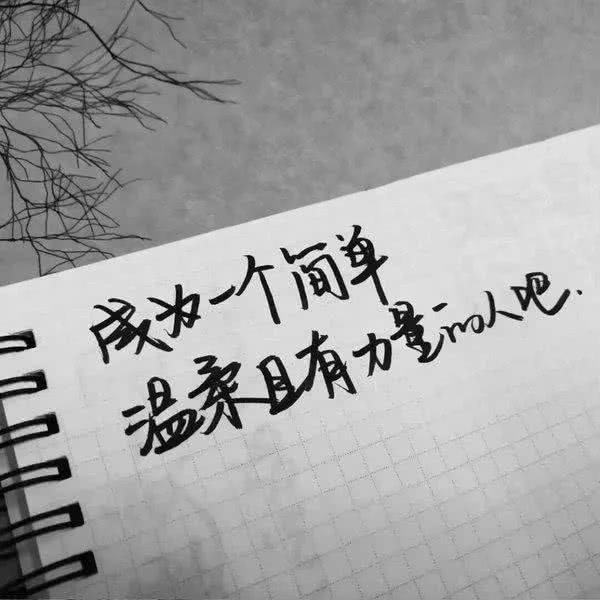 成为一个简单
温柔且有力量的人吧.